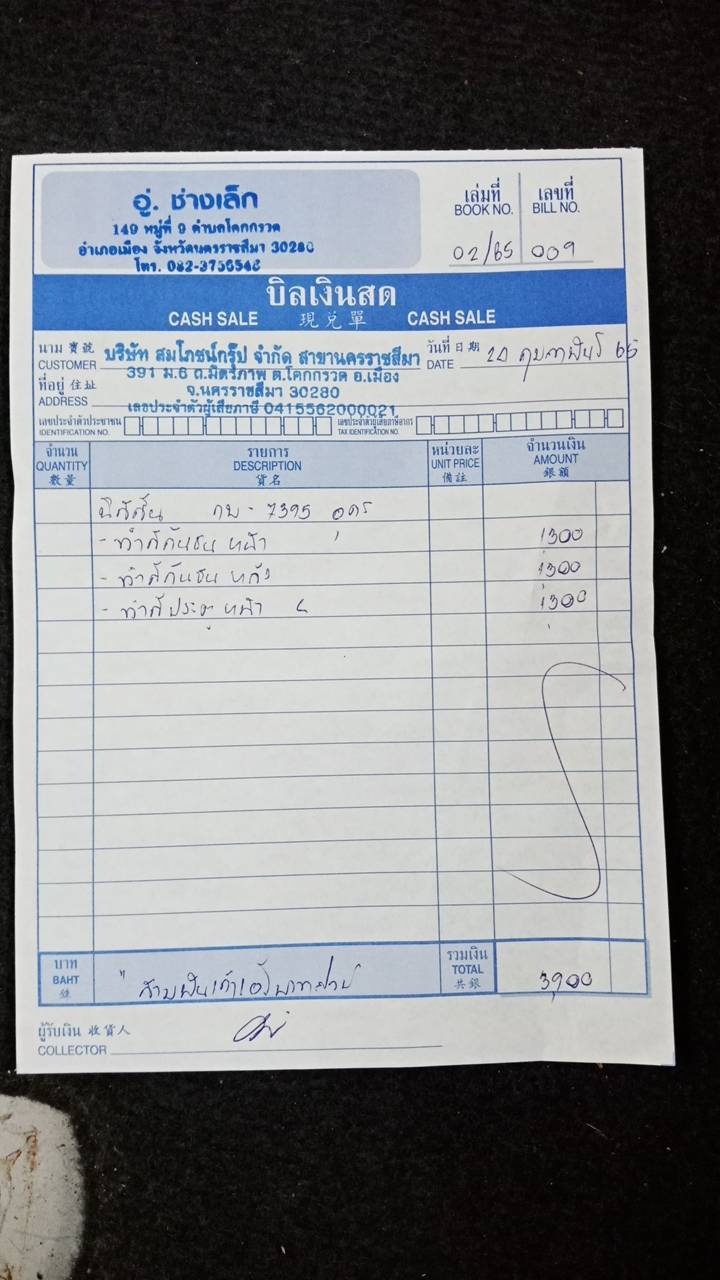 อู่. ช่างเล็ก
149 หมู่ที่ 9 ตำบลโคกกรวด
อำเภอเมือง จังหวัดนครราชสีมา 30280
โทร. 082-3756548
เล่มที่ เลขที่
BOOK NO. BILL NO.
02/65 009
บิลเงินสด
CASH SALE 現兌單 CASH SALE
นาม 寶號 บริษัท สมโภชน์กรุ๊ป จำกัด สาขานครราชสีมา วันที่ 日期
CUSTOMER 391 ม.6 ถ.มิตรภาพ ต.โคกกรวด อ.เมือง DATE กุมภาพันธ์ 65
ที่อยู่ 住址 จ.นครราชสีมา 30280
ADDRESS เลขประจำตัวผู้เสียภาษี 0415562000021
เลขประจำตัวประชาชน เลขประจำตัวผู้เสียภาษีอากร
IDENTIFICATION NO. TAX IDENTIFICATION NO.
จำนวน รายการ หน่วยละ จำนวนเงิน
QUANTITY DESCRIPTION UNIT PRICE AMOUNT
數量 貨名 備註 銀額
นิสสัน 7395 อุดร
- ทำสีกันชน หน้า 1300
- ทำสีกันชน หลัง 1300
- ทำสีประตู หน้า L 1300
บาท รวมเงิน
BAHT สามพันเก้าร้อยบาทถ้วน TOTAL 3,900
銖 共銀
ผู้รับเงิน 收貨人
COLLECTOR